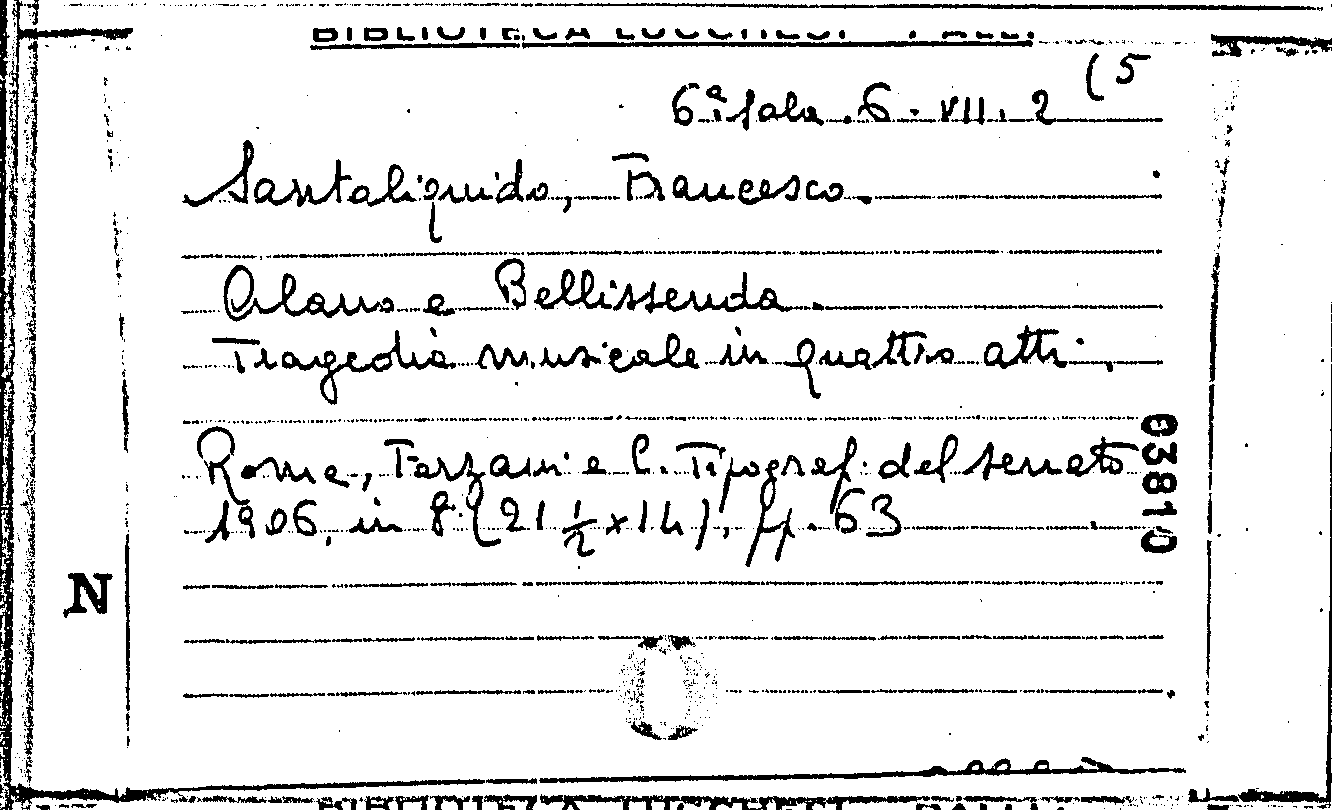 BIBLIOTECA LUCCHESI - PALLI
(5
6ª Sala. 6. VII. 2
Santaliquido, Francesco.
Alano e Bellissenda.
Tragedia musicale in quattro atti.
Roma, Forzani e C. Tipograf. del Senato
1906, in 8.º (21 ½ x 14), pp. 63
03810
N
BIBLIOTECA LUCCHESI - PALLI